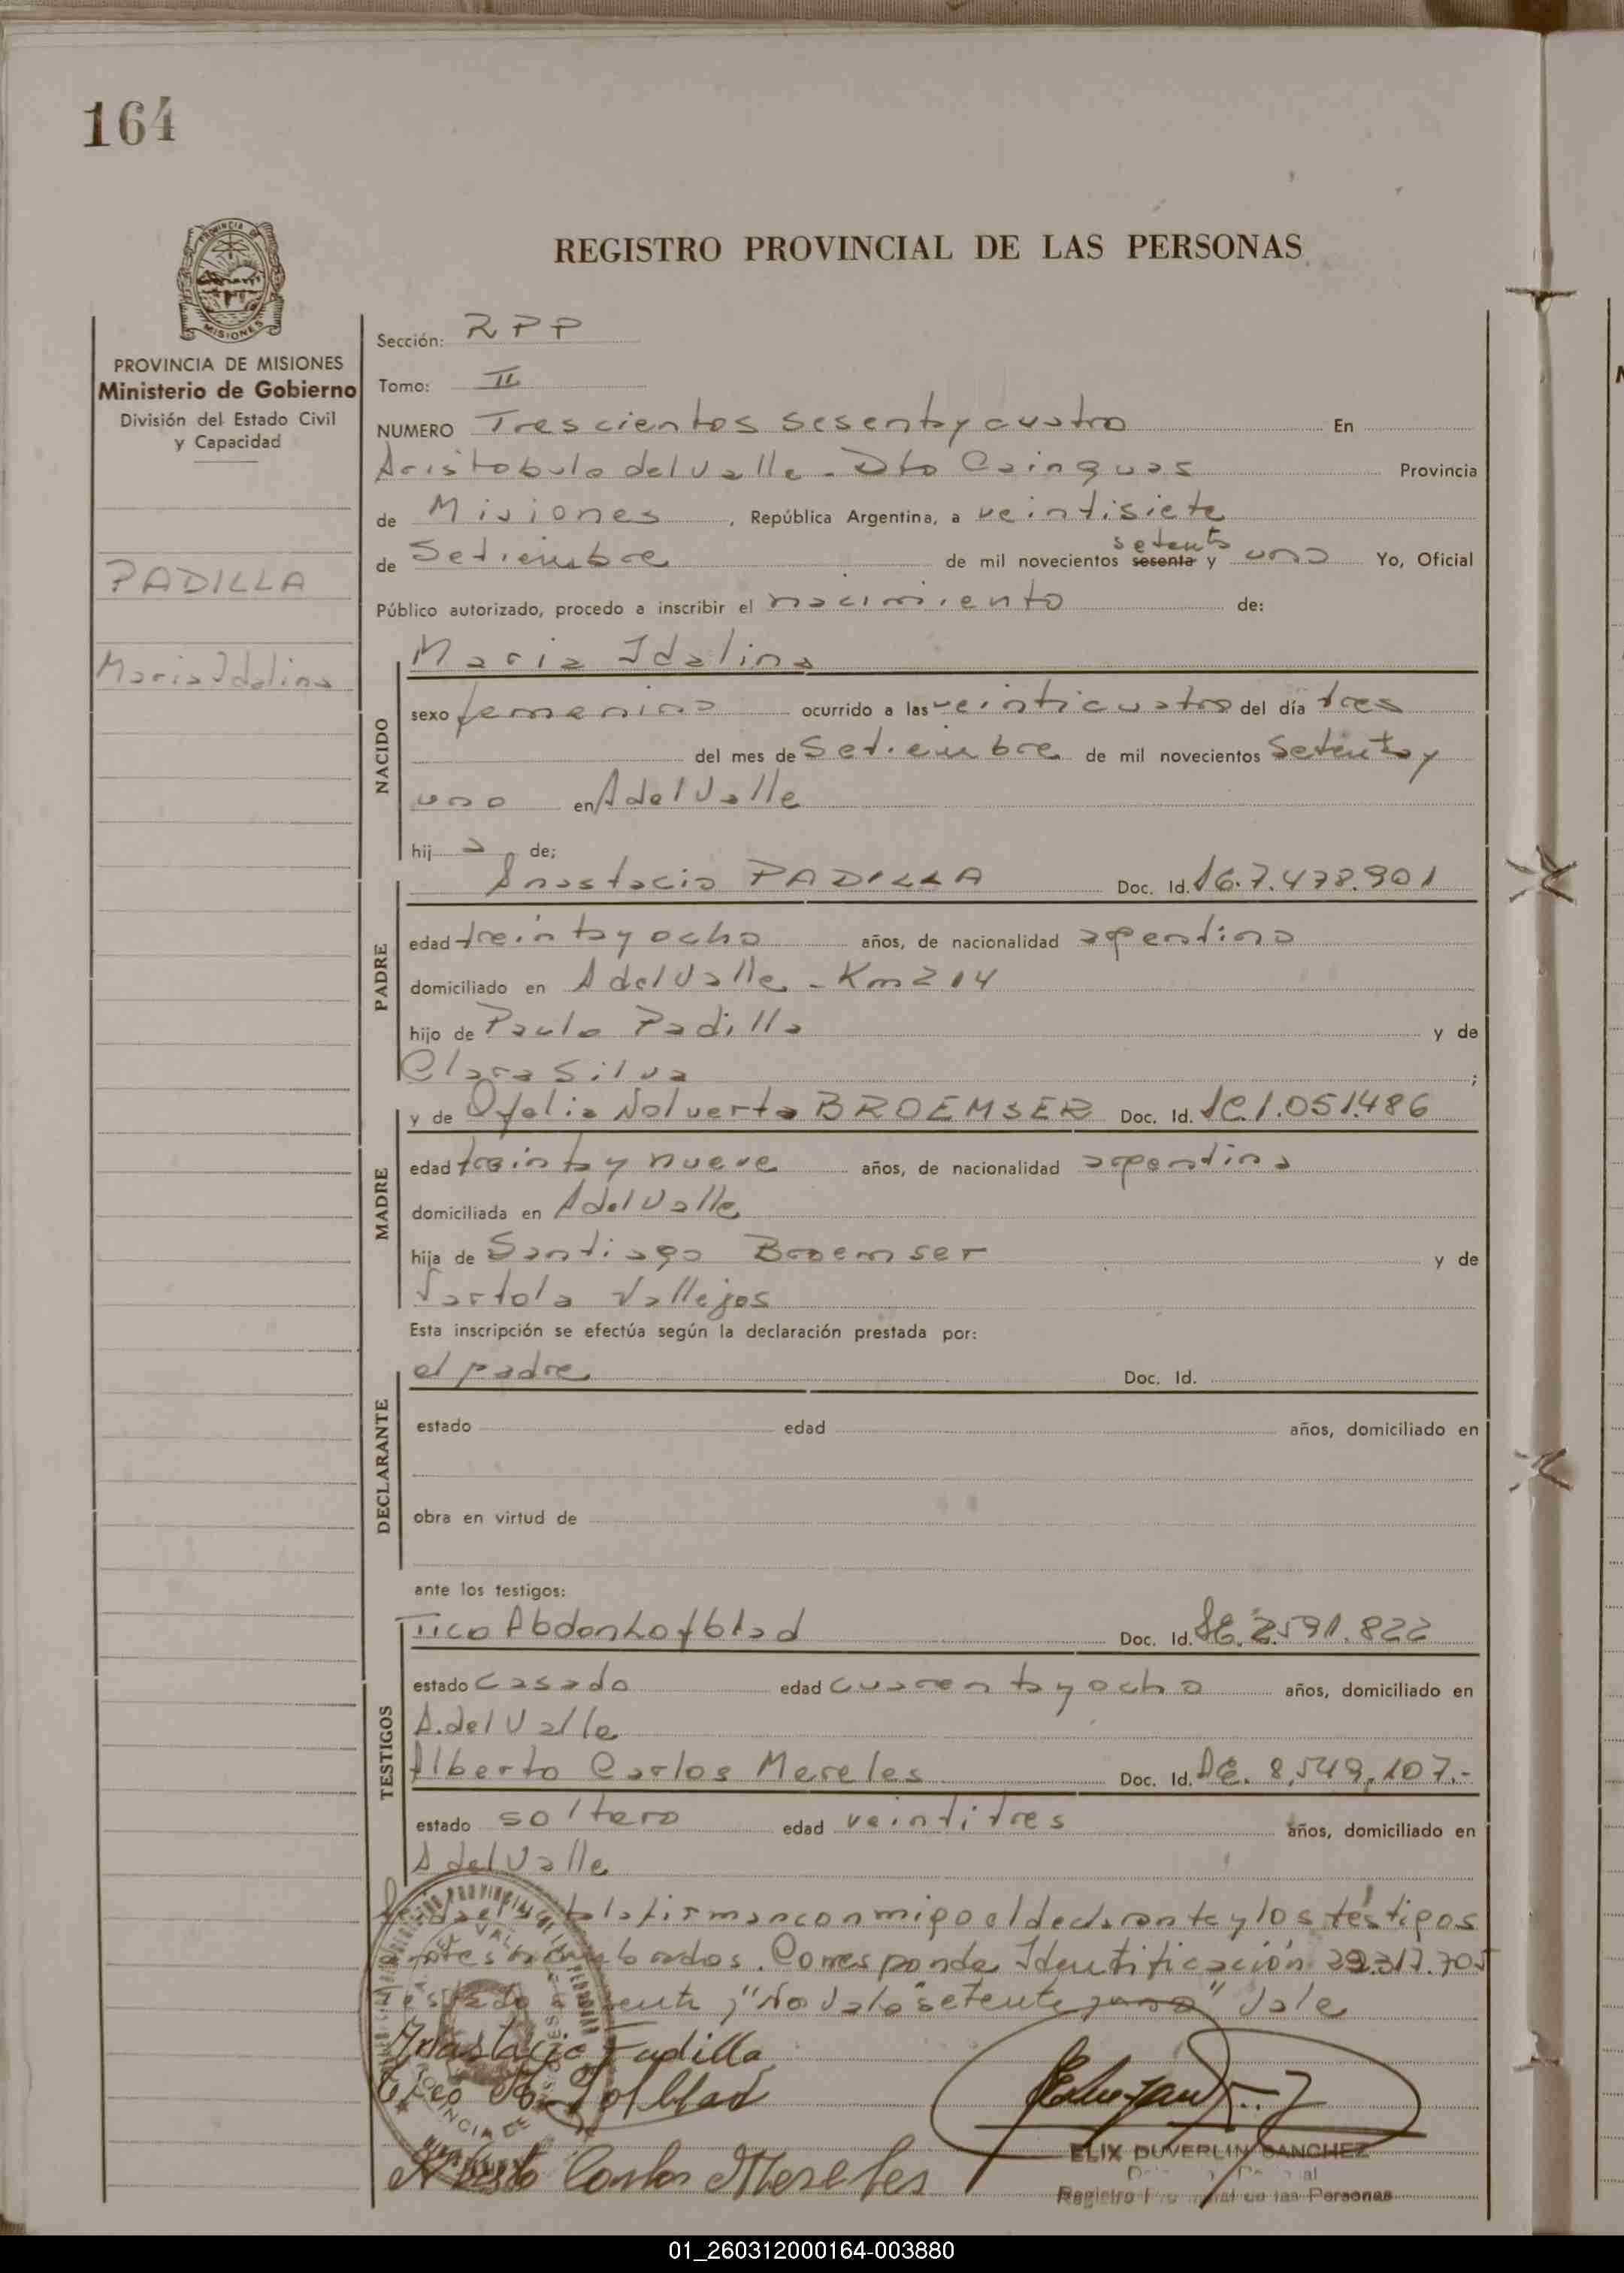 164
REGISTRO PROVINCIAL DE LAS PERSONAS
PROVINCIA DE MISIONES
Ministerio de Gobierno
División del Estado Civil
y Capacidad
PADILLA
Maria Idalina
Sección: RPP
Tomo: II
NUMERO Trescientos sesenta y cuatro En
Aristobulo del Valle - Dto Cainguas Provincia
de Misiones, República Argentina, a veintisiete
setenta
de Setiembre de mil novecientos sesenta y uno Yo, Oficial
Público autorizado, procedo a inscribir el nacimiento de:
NACIDO
Maria Idalina
sexo femenino ocurrido a las veinticuatro del día tres
del mes de Setiembre de mil novecientos Setenta y
uno en A del Valle
hij a de;
PADRE
Anastacio PADILLA Doc. Id. 7.478.901
edad treinta y ocho años, de nacionalidad argentino
domiciliado en A del Valle - Km 214
hijo de Paulo Padilla y de
Clara Silva ;
MADRE
y de Ofelia Nolverta BROEMSER Doc. Id. 1.051.486
edad treinta y nueve años, de nacionalidad argentina
domiciliada en A del Valle
hija de Santiago Broemser y de
Vallejos
Esta inscripción se efectúa según la declaración prestada por:
DECLARANTE
el padre Doc. Id.
estado edad años, domiciliado en
obra en virtud de
ante los testigos:
TESTIGOS
Tico Abdon Lofblad Doc. Id. 2.591.822
estado casado edad cuarenta y ocho años, domiciliado en
A. del Valle
Alberto Carlos Mereles Doc. Id. 8.549.107.-
estado soltero edad veintitres años, domiciliado en
A del Valle
Leida el acta la firman conmigo el declarante y los testigos
antes nombrados. Corresponde Identificación 22.317.705
"No Vale" setenta Vale
Anastacio Padilla
Tico A. Lofblad
Alberto Carlos Mereles
ELIX DUVERLIN SANCHEZ
Registro de las Personas
01_260312000164-003880